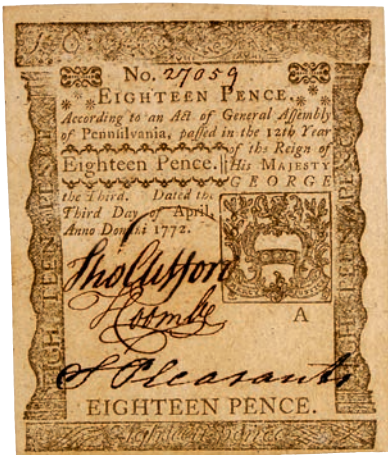 No. 27059
EIGHTEEN PENCE.
According to an Act of General Assembly
of Pennsilvania, passed in the 12th Year
of the Reign of
Eighteen Pence. His MAJESTY
GEORGE
the Third. Dated the
Third Day of April,
Anno Domini 1772.
Tho Clifford
Coombe
A
S Pleasants
EIGHTEEN PENCE.
Eighteen Pence
EIGHTEEN PENCE
EIGHTEEN PENCE